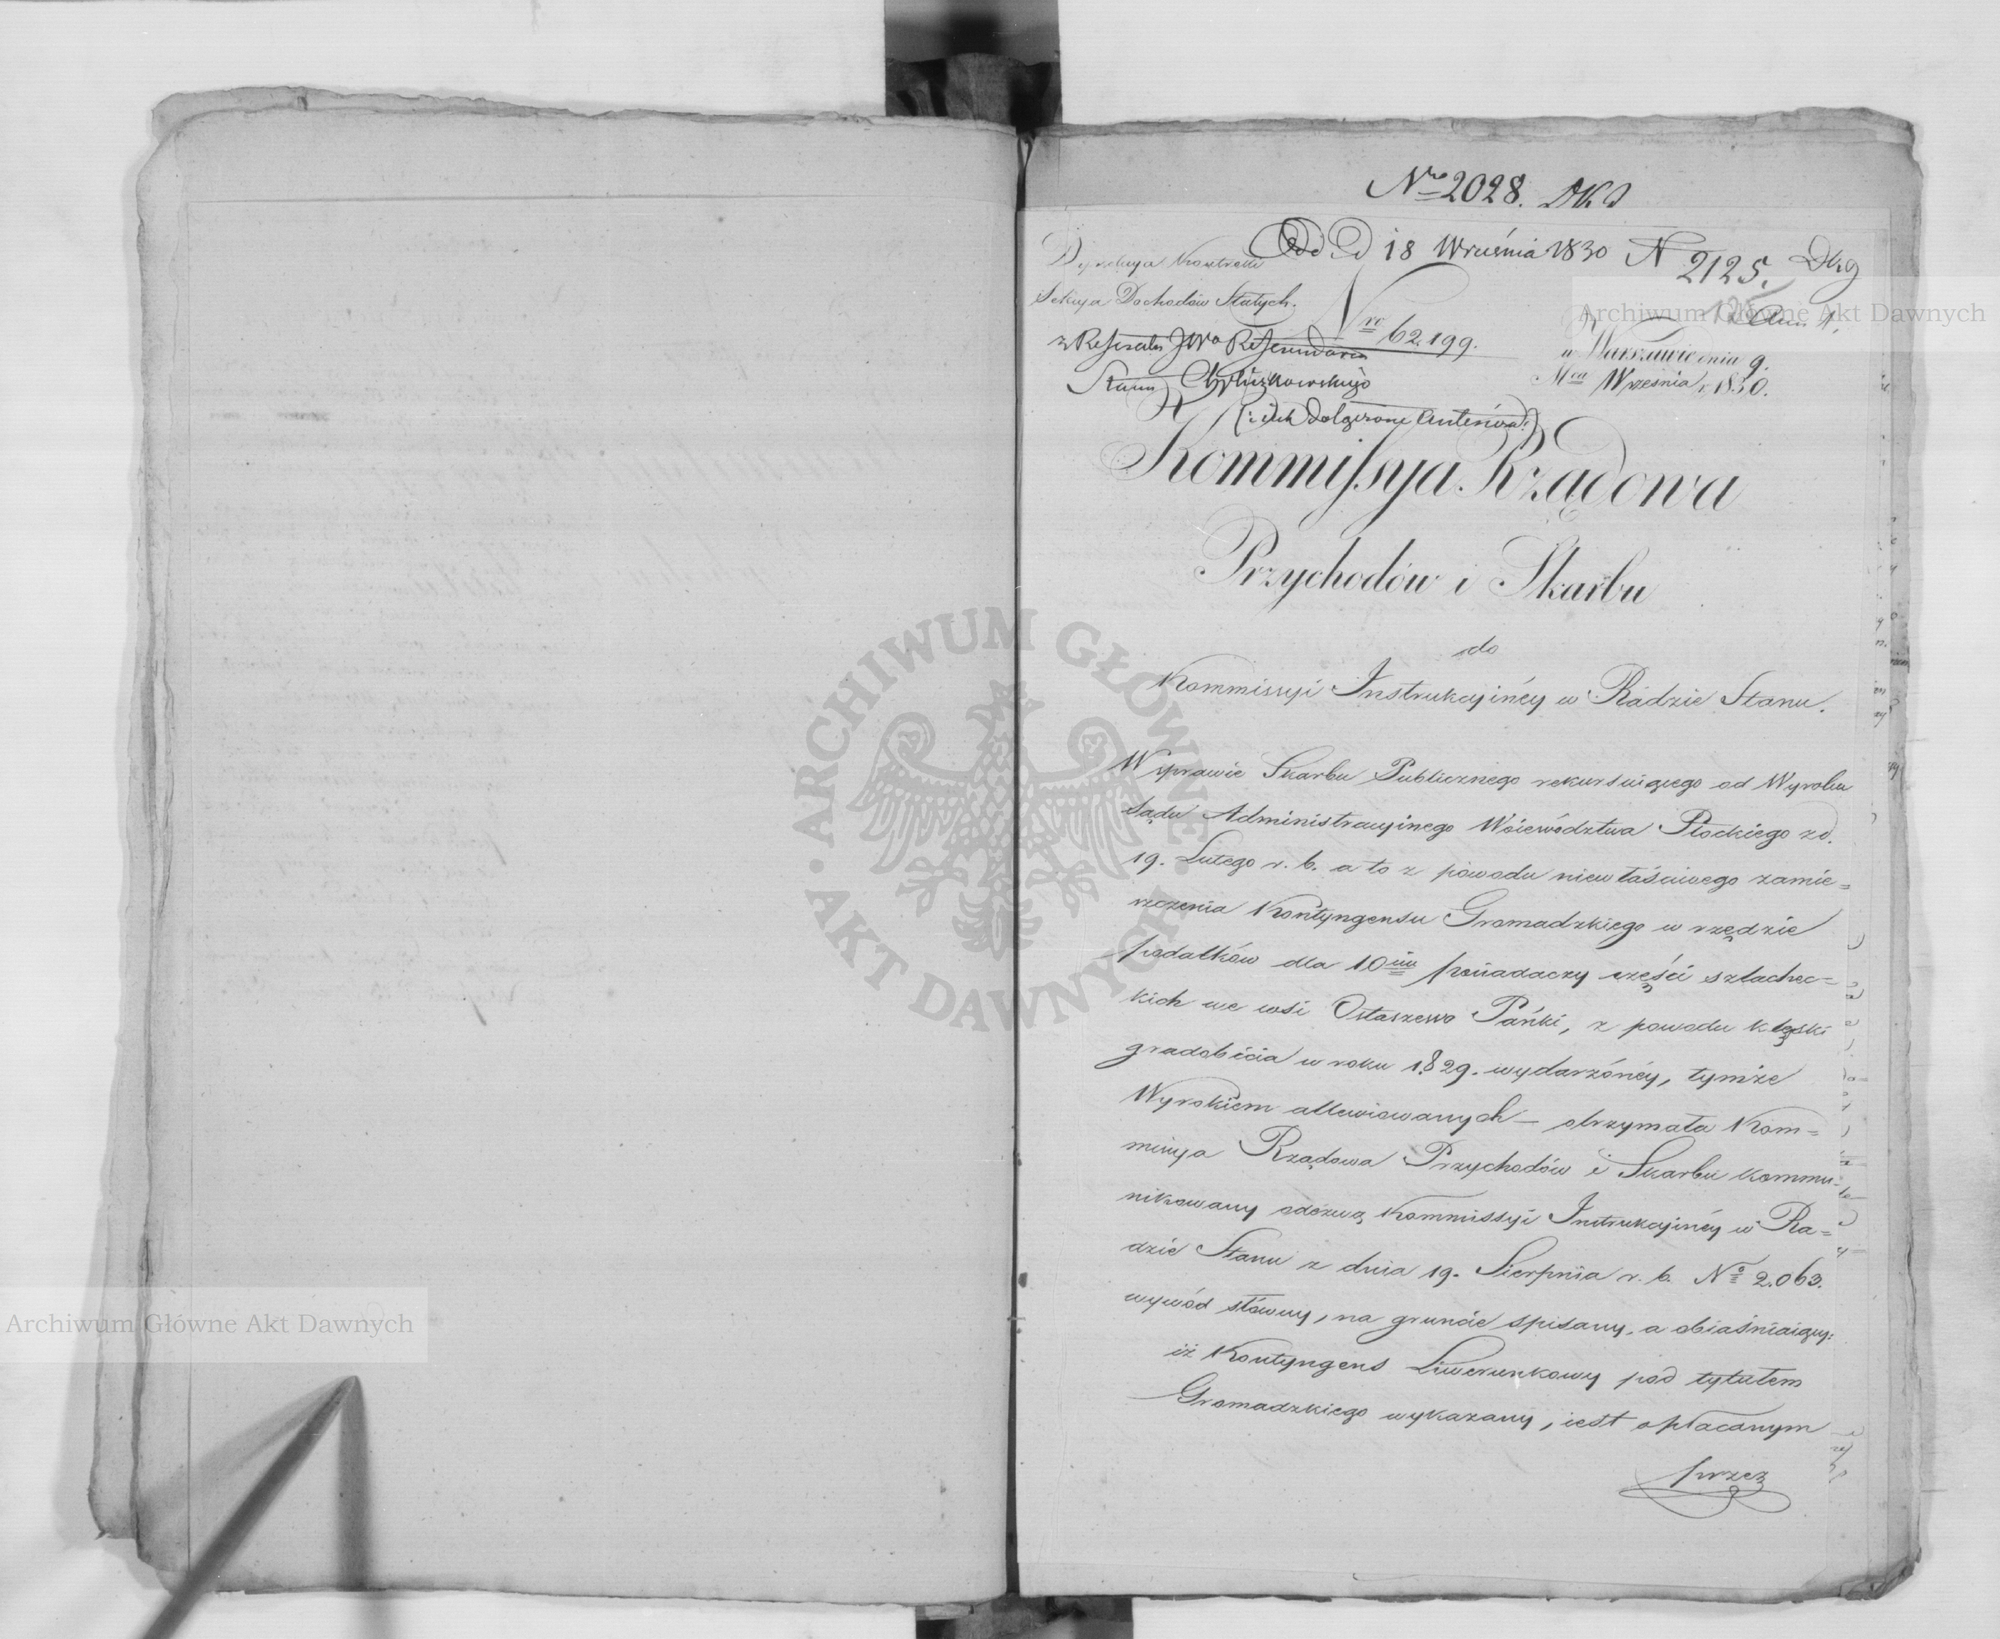 Nro 2028.
Od D 18 Września 1830 N 2125.
Dyrekcya Kontroli
Sekcya Dochodów Stałych.
Nro 62,199.
z Referatu JWo Referendarza
Stanu
w Warszawie dnia 9.
Mca Września r. 1830.
Kommissya Rządowa
Przychodów i Skarbu
do
Kommissyi Instrukcyinéy w Radzie Stanu.
W sprawie Skarbu Publicznego rekursuiącego od Wyroku
Sądu Administracyinego Woiewództwa Płockiego z d.
19. Lutego r. b. a to z powodu niewłaściwego zamie=
szczenia Kontyngensu Gromadzkiego w rzędzie
podatków dla 10ciu posiadaczy części szlachec=
kich we wsi Ostaszewo Pańki, z powodu klęski
gradobicia w roku 1829. wydarzonéy, tymże
Wyrokiem allewiowanych – otrzymała Kom=
missya Rządowa Przychodów i Skarbu kommu=
nikowany odezwą Kommissyi Instrukcyinéy w Ra=
dzie Stanu z dnia 19. Sierpnia r. b. No 2.063.
wywód słowny, na gruncie spisany, a obiaśniaiący:
iż Kontyngens Liwerunkowy pod tytułem
Gromadzkiego wykazany, iest opłacanym
przez
Archiwum Główne Akt Dawnych
ARCHIWUM GŁÓWNE · AKT DAWNYCH ·
Archiwum Główne Akt Dawnych